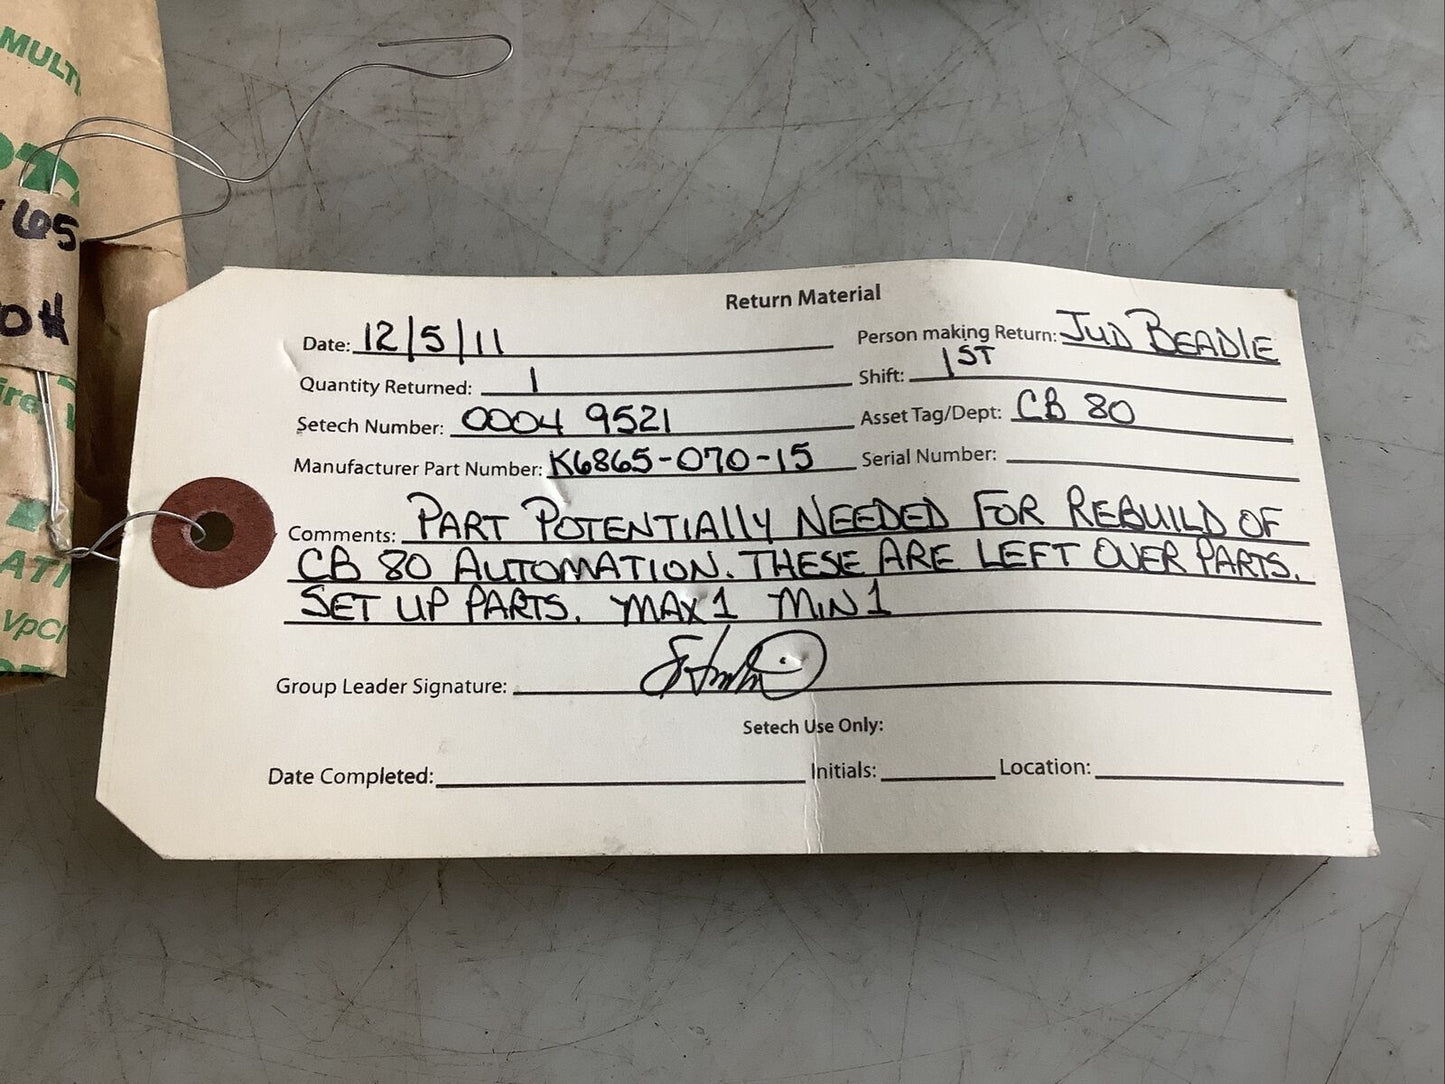 MULTI
65
0#
ATI
VpCI
Return Material
Date: 12/5/11 Person making Return: JUD BEADLE
Quantity Returned: 1 Shift: 1ST
Setech Number: 0004 9521 Asset Tag/Dept: CB 80
Manufacturer Part Number: K6865-070-15 Serial Number:
Comments: PART POTENTIALLY NEEDED FOR REBUILD OF
CB 80 AUTOMATION. THESE ARE LEFT OVER PARTS.
SET UP PARTS. MAX 1 MIN 1
Group Leader Signature:
Setech Use Only:
Date Completed: Initials: Location: